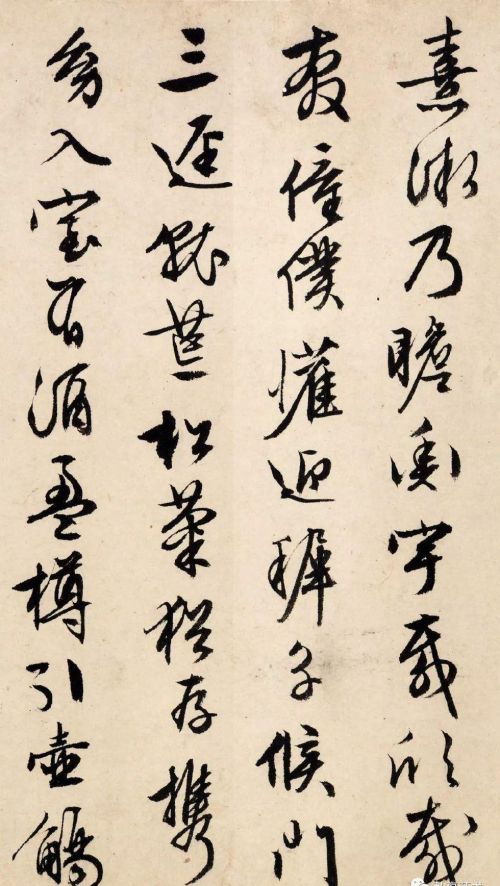 熹微乃瞻衡宇載欣載
奔僮僕懽迎稚子候門
三逕就荒松菊猶存携
幼入室有酒盈樽引壺觴